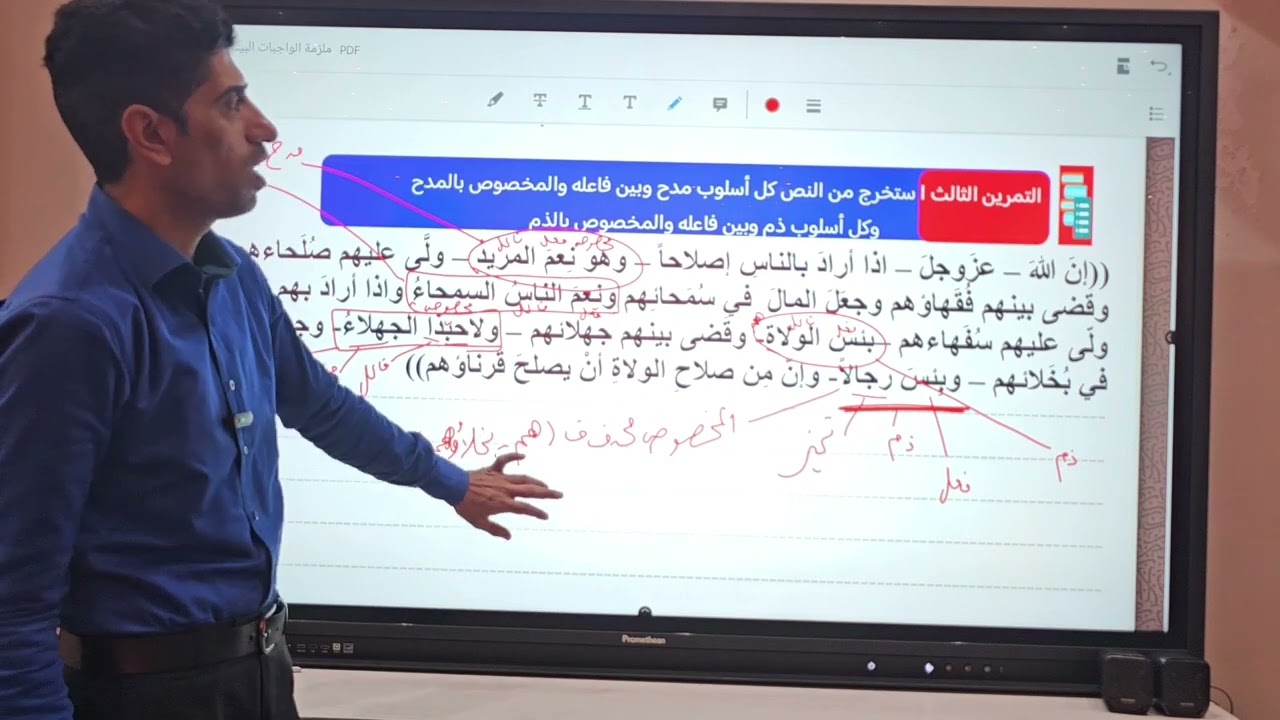 PDF ملزمة الواجبات البيت
التمرين الثالث ا ستخرج من النص كل أسلوب مدح وبين فاعله والمخصوص بالمدح
وكل أسلوب ذم وبين فاعله والمخصوص بالذم
مدح
مخصوص فعل فاعل
((إنَ اللهَ – عزَوجلَ – اذا أرادَ بالناسِ إصلاحاً – وهُو نِعمَ المَزيد – ولَّى عليهم صُلَحاءه
وقضى بينهم فُقَهاؤهم وجعَلَ المالَ في سُمَحائهِم ونعَمَ الناسُ السمحاءُ واذا أرادَ بهم
فعل فاعل مخصوص
ولّى عليهم سُفَهاءهم – بئسَ الولاة- وقضى بينهم جهلائهم – ولاحبّذا الجهلاءُ- وج
فعل فاعل
في بُخَلائهم – وبئسَ رجالاً- وإنَ مِن صلاحِ الولاةِ أنْ يصلحَ قُرناؤهم))
فاعل
المخصوص محذوف (هم - بخلاؤهم
تمييز
ذم
فعل
ذم
Promethean